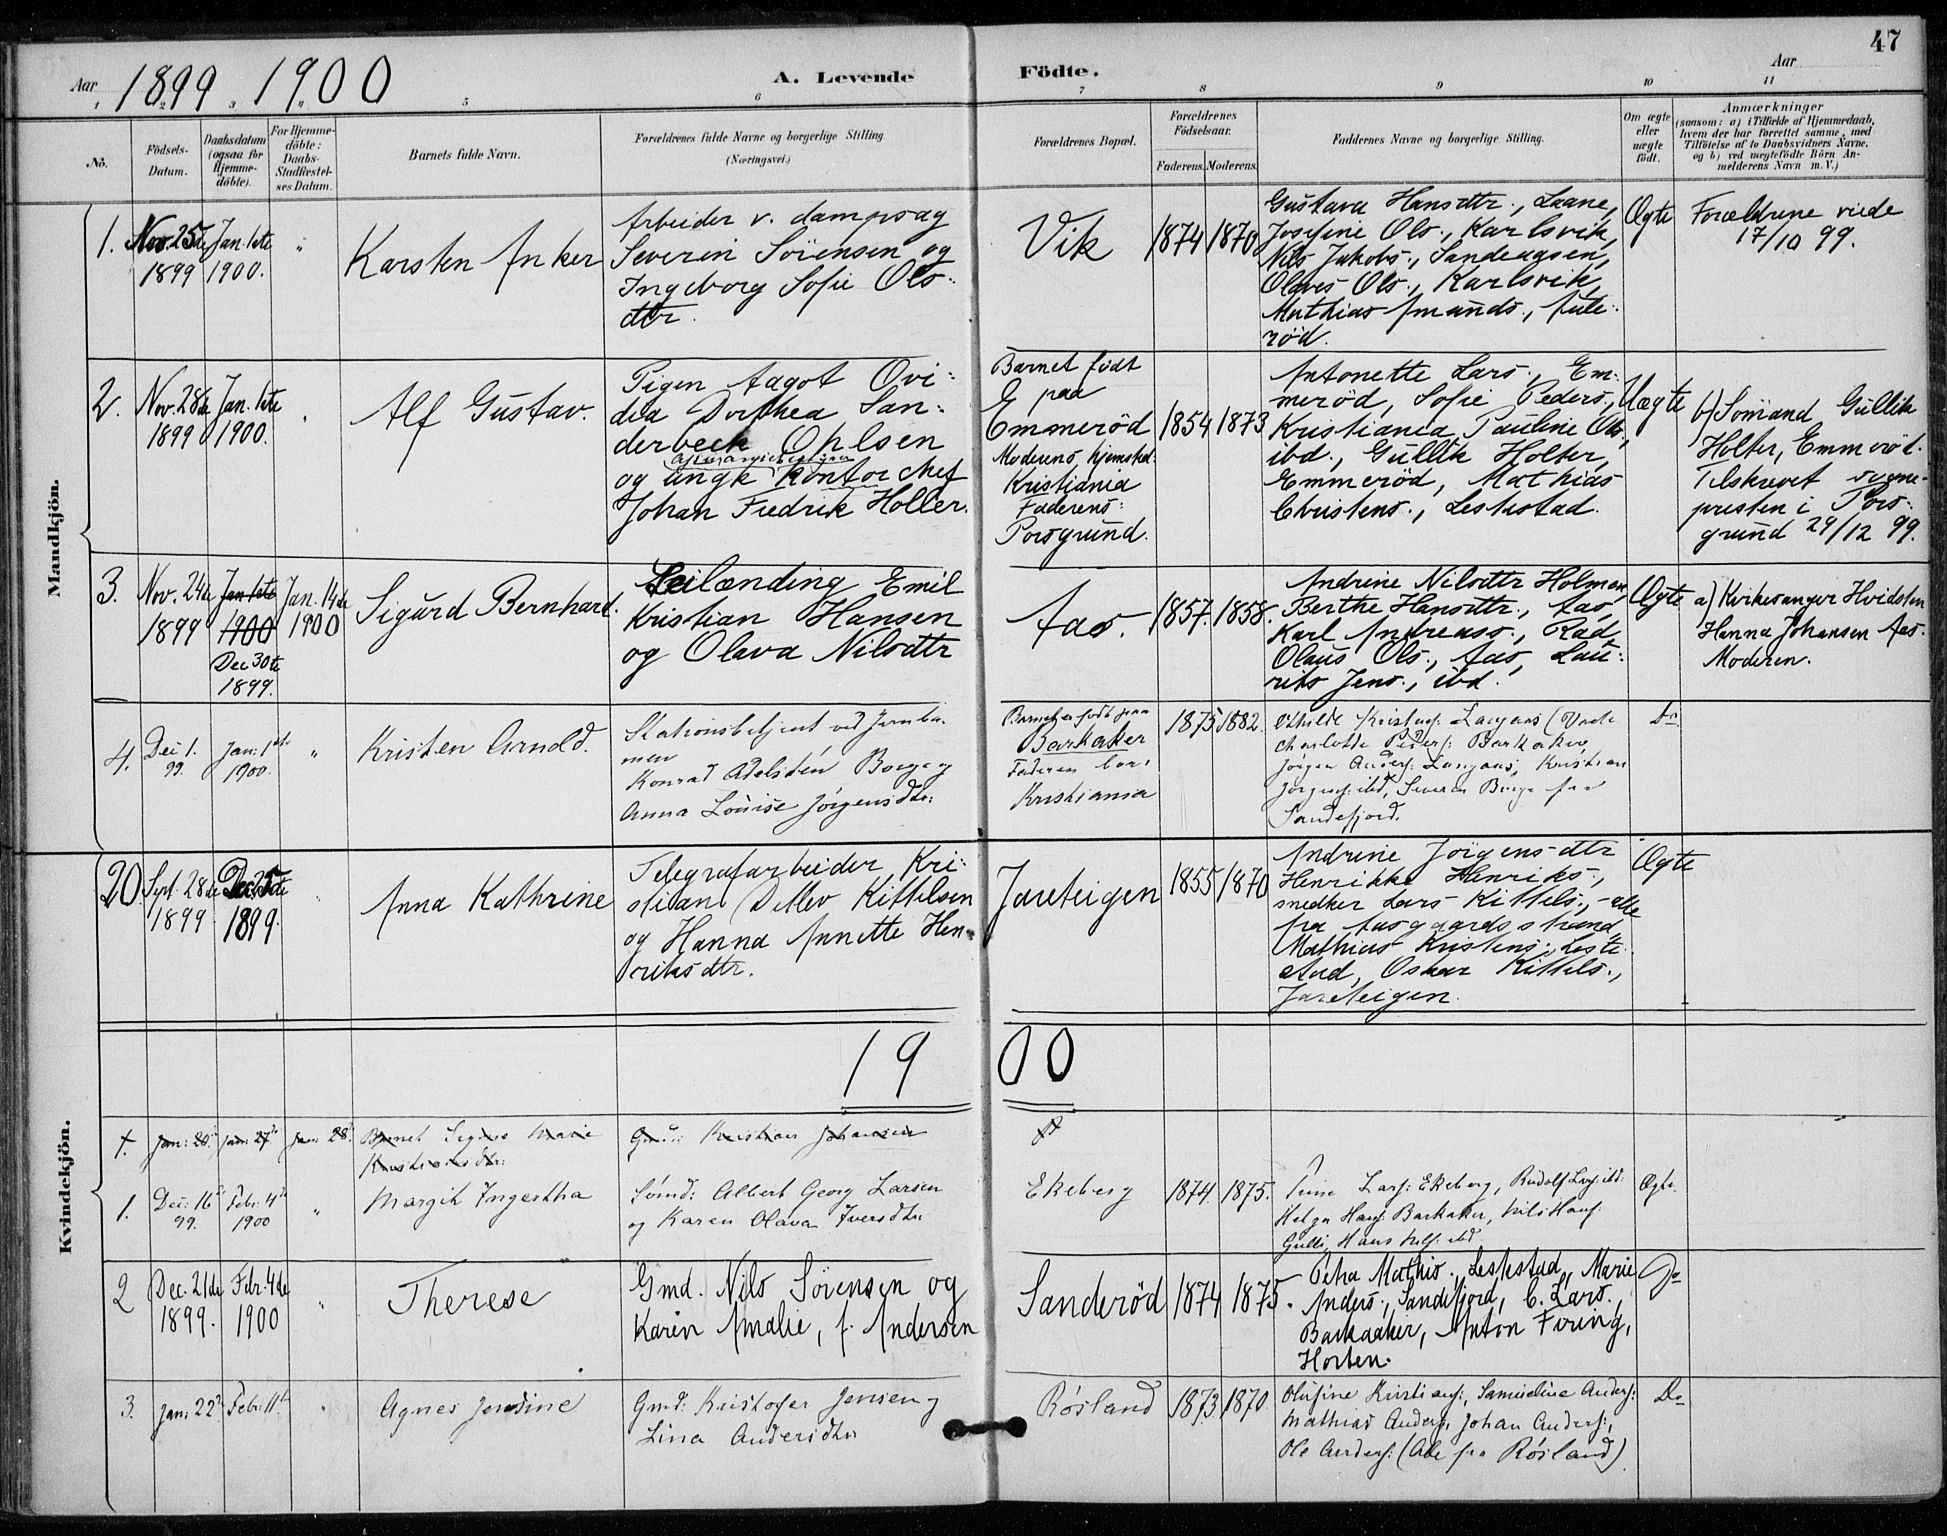 47
Aar 1899 1900
A. Levende Födte.
Aar
1 2 3 4 5 6 7 8 9 10 11
No.
Födsels-Datum.
Daabsdatum (ogsaa for Hjemmedöbte).
For Hjemmedöbte: Daabs-Stadfæstelses Datum.
Barnets fulde Navn.
Forældrenes fulde Navne og borgerlige Stilling. (Næringsvei.)
Forældrenes Bopæl.
Forældrenes Födselsaar.
Faderens. Moderens.
Faddernes Navne og borgerlige Stilling.
Om ægte eller uægte födt.
Anmærkninger
(saasom: a) i Tilfælde af Hjemmedaab,
hvem der har forrettet samme, med
Tilföielse af to Daabsvidners Navne,
og b) ved uægtefödte Börn Anmelderens Navn m. V.)
Mandkjön.
1.
Nov. 25de 1899
Jan. 1ste 1900.
"
Karsten Anker
Arbeider v. dampsag
Severin Sörensen og
Ingeborg Sofie Ols-
dtr.
Vik
1874 1870
Gustava Hansdtr., Laane,
Josefine Ols., Karlsvik,
Nils Jakobs., Sandeagsen,
Olaves Ols., Karlsvik,
Mathias Amunds., Aule-
röd.
Ægte
Forældrene viede
17/10 99.
2.
Nov. 28de 1899
Jan. 1ste 1900.
Alf Gustav.
Pigen Aagot Ovi-
dia Dorthea San-
derbeck Ohlsen
og ungk kontorchef
Johan Fredrik Holler.
Barnet födt
paa
Emmeröd
Moderens hjemsted:
Kristiania
Faderens:
Porsgrund.
1854 1873
Antonette Lars., Em-
meröd, Sofie Peders.,
Kristiania, Pauline Ols.,
ibd., Gullik Holter,
Emmeröd, Mathias
Christens., Lestestad.
Uægte
b) Sömand Gullik
Holter, Emmeröd.
Tilskrevet sogne-
presten i Pors-
grund 29/12 99.
3.
Nov. 24de 1899
Jan 1ste 1900
Dec 30te 1899.
Jan. 14de 1900
Sigurd Bernhard.
Leilænding Emil
Kristian Hansen
og Olava Nilsdtr
Aas.
1857. 1858.
Andrine Nilsdtr Holmen
Berthe Hansdtr., Aas,
Karl Andreass., Rød,
Olaus Ols., Aas, Lau-
rits Jens., ibd.
Ægte
a) Kirkesanger Hvidsten
Hanna Johansen Aas.
Moderen.
4.
Dec 1. 99.
Jan: 1ste 1900.
"
Kristen Arnold.
Stationsbetjent ved Jernba-
nen
Konrad Adelstén Borge og
Anna Louise Jörgensdtr:
Barnet er født paa
Barkaker
Faderen bor:
Kristiania
1875 1882.
Charlotte Peders: Barkaker,
Jørgen Anders: Langaas, Kristian
Jørgens: ibd, Severin Borge fra
Sandefjord.
Do
Kvindekjön.
20
Sept. 28de 1899
Dec 25de 1899.
Anna Kathrine
Telegrafarbeider Kri-
stian Detlev Kittilsen
og Hanna Annette Hen-
riksdtr.
Jareteigen
1855 1870
Andrine Jörgens-dtr
Henrikke Henriks.,
snedker Lars Kittils., - alle
fra Aasgaardsstrand
Mathias Kristens., Leste-
stad, Oskar Kittils.,
Jareteigen.
Ægte
1900
1.
Jan: 20. Jan: 27de Jan: 28.
Barnet Signe Marie
Kristiansdtr:
Gmd: Kristian Johansen
1.
Dec: 16de 99.
Febr: 4de 1900
"
Margit Ingertha
Sømd: Albert Georg Larsen
og Karen Olava Iversdtr:
Ekeberg
1874. 1875.
Trine Lars: Ekeberg, Rudolf Lars: ibd:
Helga Hans: Barkaker, Nils Hans:
Gulli, Hans Nils: ibd.
Ægte.
2
Dec. 21de 1899.
Febr. 4de 1900
"
Therese
Gmd. Nils Sörensen og
Karin Amalie, f. Andersen
Sanderöd
1874 1875.
Petra Mathis. Lestestad, Marie
Anders., Sandefjord, C. Lars.,
Barkaaker, Anton Foring,
Horten.
Do
3.
Jan: 22de
Febr: 11te
Agnes Jensine
Gmd: Kristofer Jensen og
Lina Andersdtr:
Røsland
1873 1870
Olufine Kristians:, Samueline Anders:
Mathias Anders:, Johan Anders:,
Ole Anders: (Alle fra Røsland)
Do